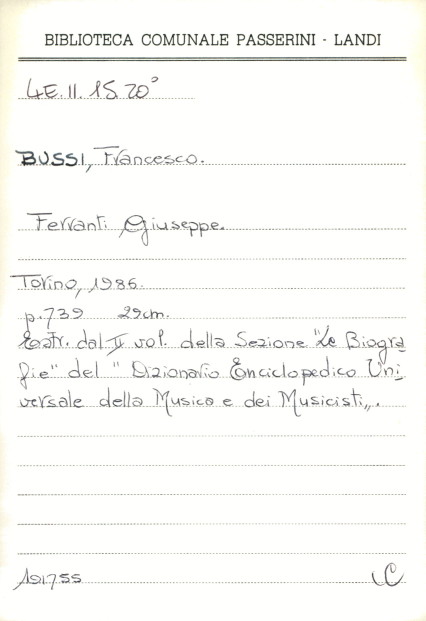 BIBLIOTECA COMUNALE PASSERINI - LANDI
4E.II.15.20°
BUSSI, Francesco.
Ferranti Giuseppe.
Torino, 1986.
p.739 29cm.
Estr. dal II vol. della Sezione "Le Biogra
fie" del "Dizionario Enciclopedico Uni
versale della Musica e dei Musicisti„.
191755
C